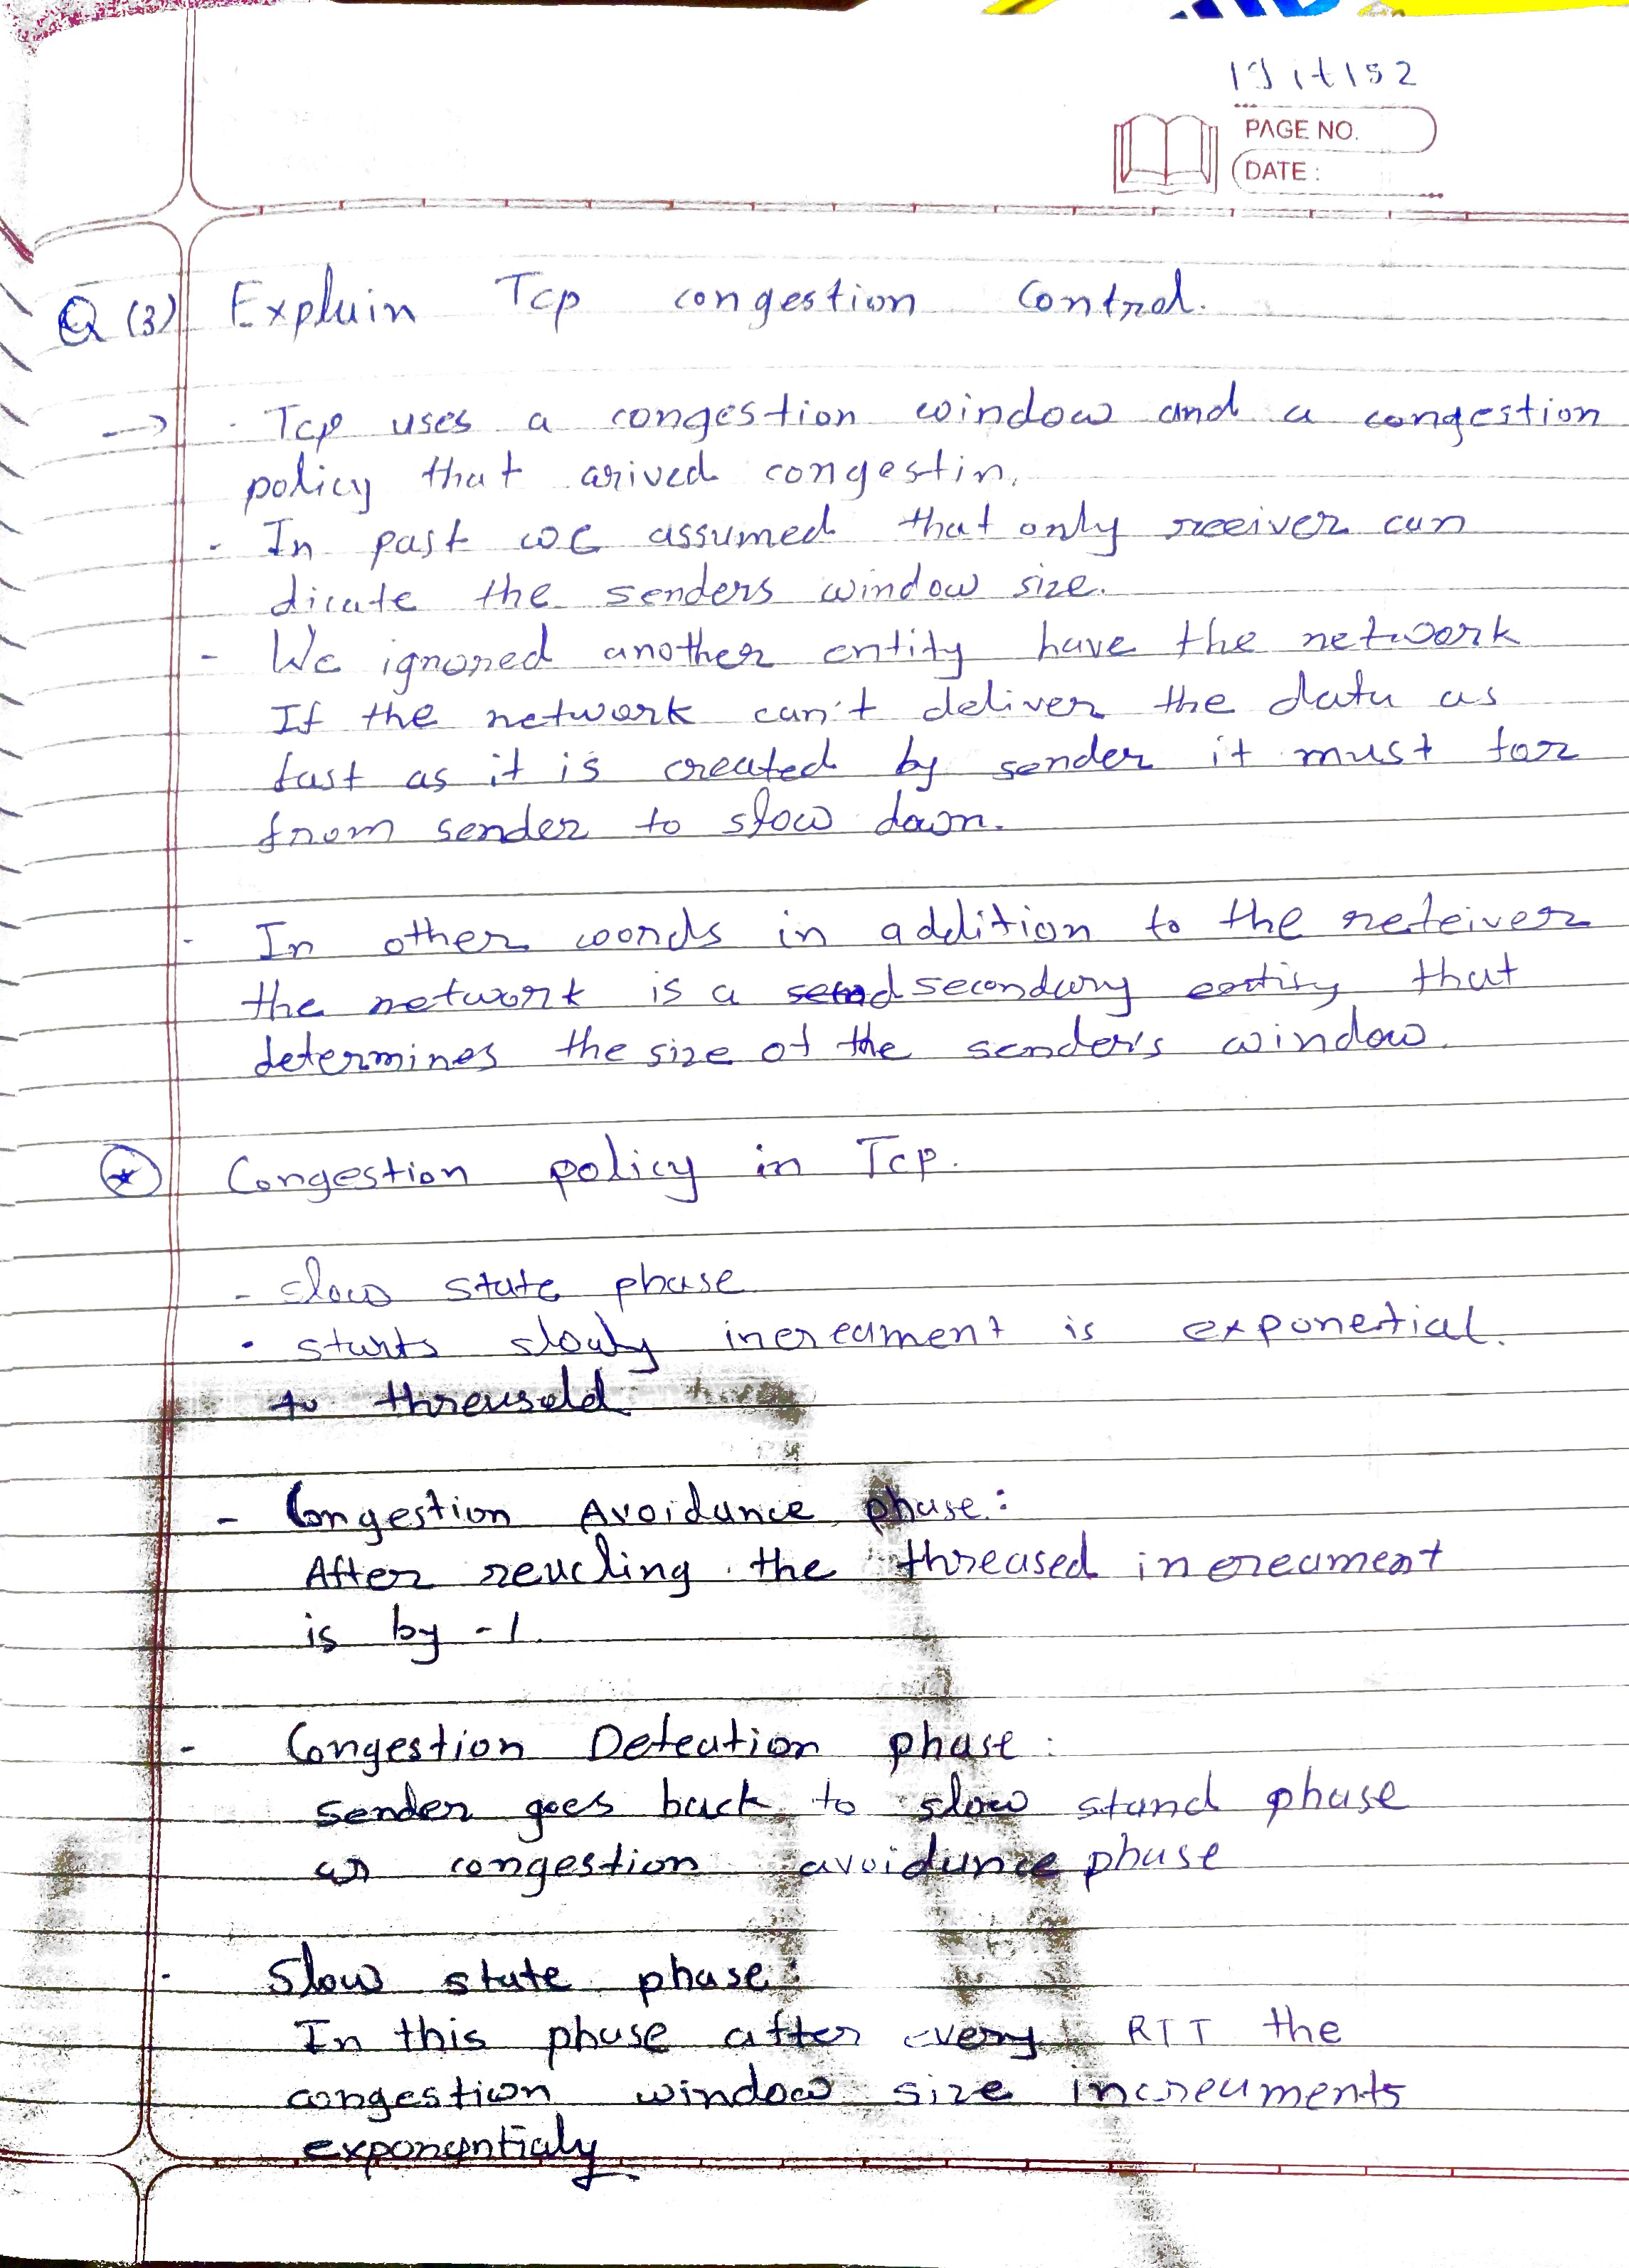 19it152
PAGE NO.
DATE :
Q (3) Explain Tcp congestion Control.
→ · Tcp uses a congestion window and a congestion
policy that arived congestin.
- In past we assumed that only receiver can
dicate the senders window size.
- We ignored another entity have the network
If the network can't deliver the data as
fast as it is created by sender it must for
from sender to slow down.
- In other words in addition to the reteiver
the network is a secondary entity that
determines the size of the sender's window.
* Congestion policy in Tcp.
- slow state phase
· starts slowly increament is exponetial.
to threasold
- Congestion Avoidance phase:
After reacling the threased increament
is by -1.
- Congestion Detection phase:
sender goes back to slow stand phase
or congestion avoidance phase
· Slow state phase:
In this phase after every RTT the
congestion window size increaments
exponantialy